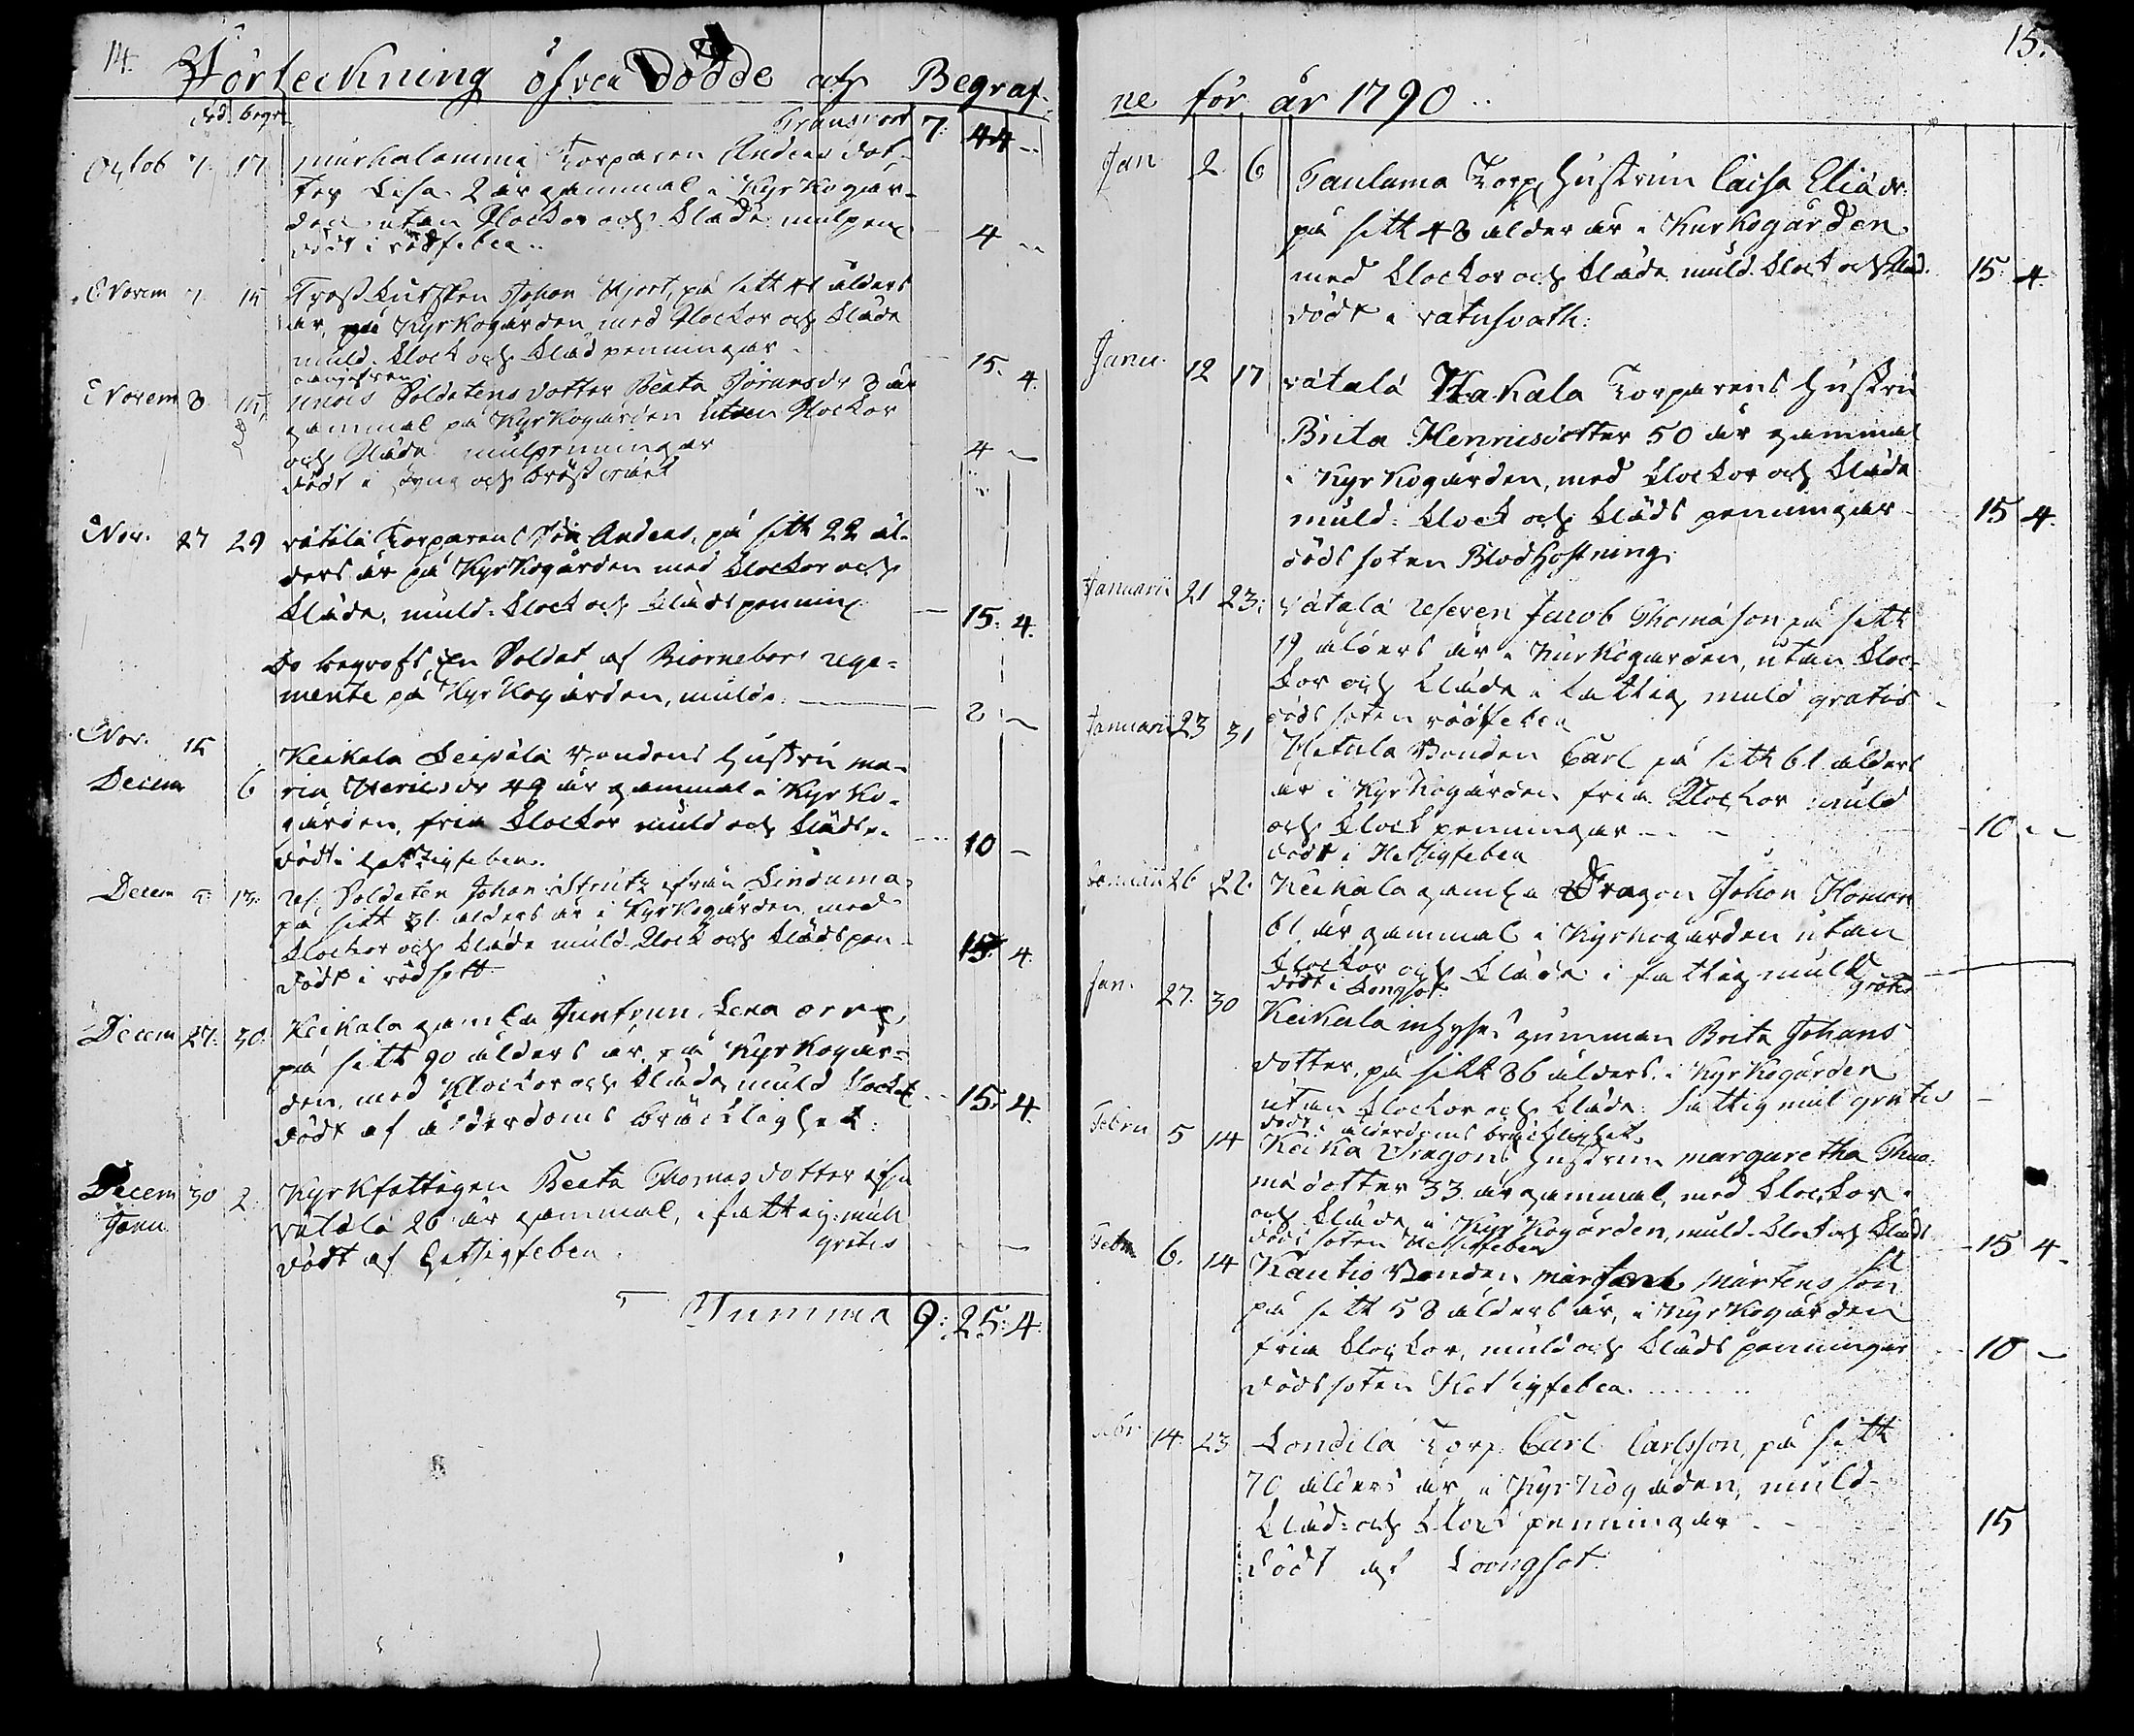 14.
Förteckning öfver Dödde och Begraf-
död. begr.
Transport 7: 44 --
Octob 7. 17 murkalammi Torparen Anders dot-
ter Lisa. 2 år gammal i Kyrkogår-
den utan Klockor och Kläde mulpen 4 --
dödt i rödfeber..
Novem 7. 15 Trosskusken Johan Hjort, på sitt 41 ålders
år, på Kyrkogården med Klockor och Kläde
muld. Klock och Klädpenningar 15. 4.
Novem 8 15 Soldatens dotter Beata Göransdr 8 år
gammal på Kyrkogården utan Klockor
och Kläde mulpenningar 4 --
dödt i och bröstvärk
Nov. 27 29 vätälä Torparens Son Anders, på sitt 22 ål-
ders år på Kyrkogården med Klockor och
Kläde, muld. Klock och Klädspenning 15. 4.
Do begrofs En Soldat af Biörneborgs rege-
mente på Kyrkogården, mulde. 2 --
Nov. 15
Decem 6 Keikala Seipälä Bondens hustru ma-
ria Henricsdr 49 år gammal i Kyrko-
gården, fria Klockor muld och Kläds. 10 --
dödt i hetsigfeber.
Decem 5. 13. Soldaten Johan Strutz från Sinduma
på sitt 31 ålders år i Kyrkogården med
Klockor och Kläde muld Klock och Klädspen- 15. 4.
dödt i rödsott
Decem 27. 30. Keikala gamla Juntrun Lena
på sitt 90 ålders år, på Kyrkogår-
den, med Klockor och Kläde, muld Klock 15. 4.
dödt af ålderdoms bräcklighet.
Decem 30 2 Kyrkfattigen Beata Thomasdotter ifrån
Janu vätälä 26 år gammal, i fattig mull
gratis --
dödt af hetsigfeber.
Summa 9: 25: 4:
15.
ne för år 1790..
Jan 2. 6 Taulama Torp. hustrun Caisa Eliædr.
på sitt 48 ålder år i Kyrkogården
med Klockor och Kläde muld. Klock och Kläd. 15. 4.
dödt i vatusoth:
Janu. 12 17 vätalä Hakala Torparens hustru
Brita Henricsdotter 50 år gammal
i Kyrkogården, med Klockor och Kläde
muld. Klock och Kläds penningar 15 4.
dödssoten Blodhostning.
Januarii 21 23. Vätalä Jacob Thomason på sitt
19 ålders år i Kyrkogården, utan Kloc-
kor och Kläde i fattig muld gratis
dödssoten rödfeber
Januarii 23 31 Uotula Bonden Carl på sitt 61 ålders
år i Kyrkogården fria Klockor muld
och Klock penningar 10 --
dödt i Hetsigfeber
Januarii 26 22. Keikala gamla Dragon Johan Homan
61 år gammal i Kyrkogården utan
Klockor och Kläde i fattig muld
gratis
dödt i Longsot.
Jan. 27. 30 Keikala inhyses gumman Brita Johans
dotter, på sitt 86 ålders. i Kyrkogården
utan Klockor och Kläde. fattig mul gratis --
dödt i ålderdoms bräcklighet.
Febru 5 14 Keika Dragons hustrun margaretha Tho-
madotter 33 år gammal, med Klockor
och Kläde i Kyrkogården, muld. Klock och Kläds 15 4.
dödssoten Hetsigfeber
Febru 6. 14 Kautio Bonden Mårtens son
på sitt 58 ålders år, i Kyrkogården
fria Klockor, muld och Kläds penningar 10 --
dödssoten Hetsigfeber........
Febr 14. 23 Londila Torp. Carl Carlsson, på sitt
70 ålders år i Kyrkogården, muld.
Kläd. och Klock penningar 15
dödt af Loongsot.